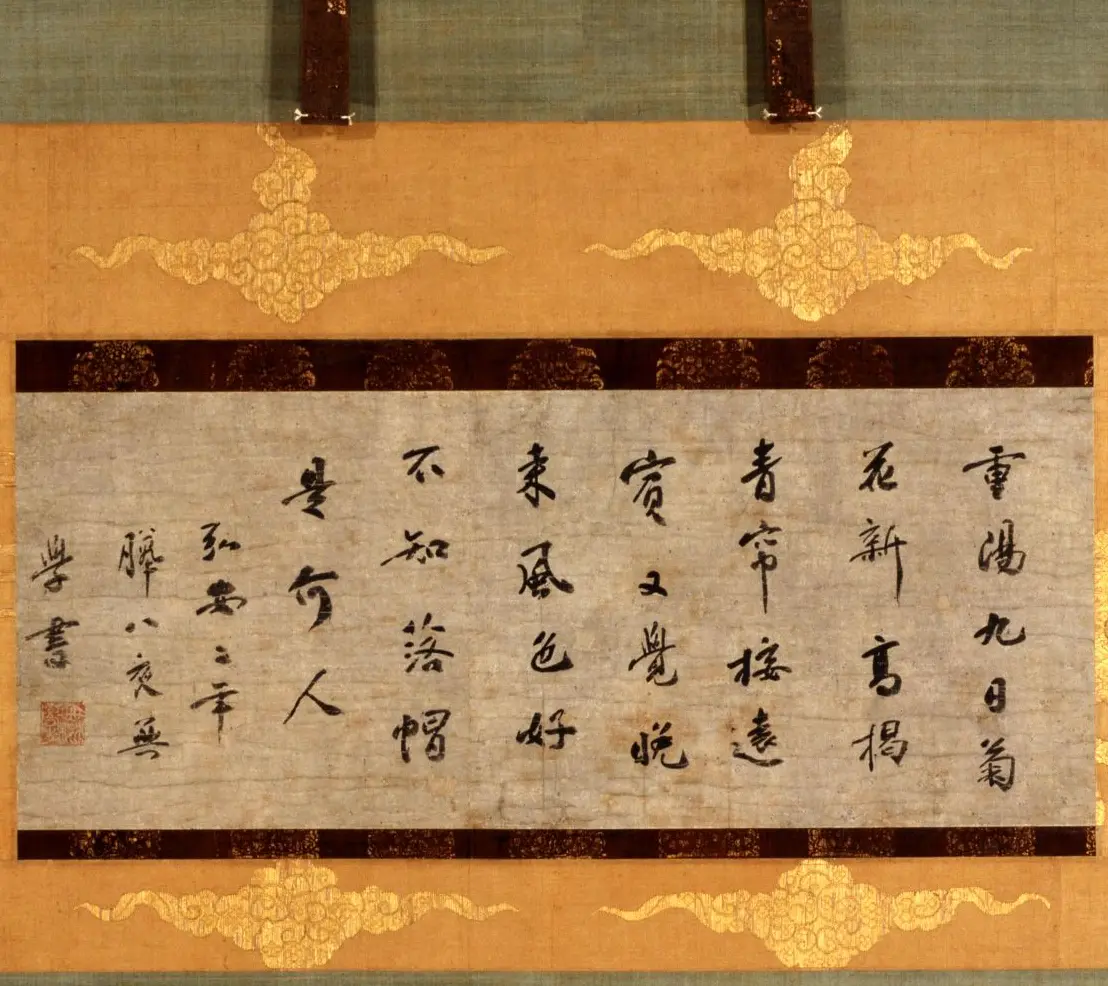 重陽九日菊
花新高掲
青帘接遠
賓又覺晚
来風色好
不知落帽
是何人
弘安二年
臘八夜無
學書